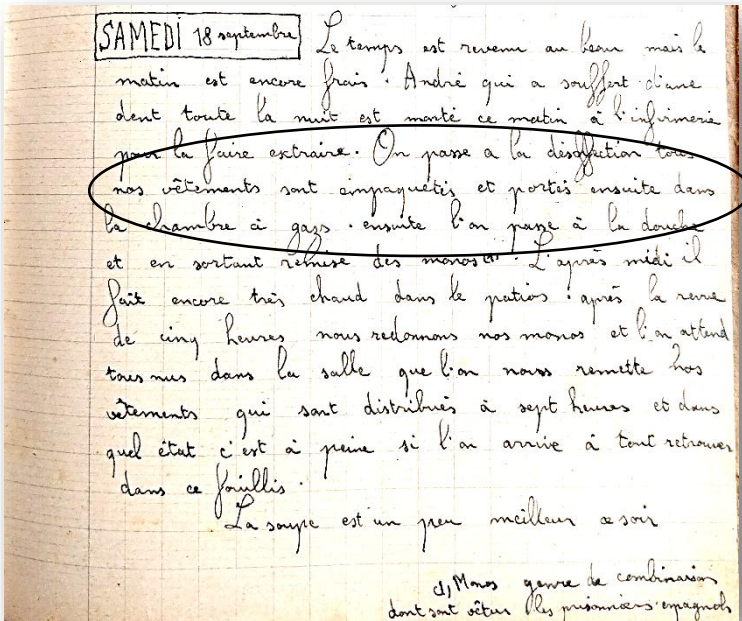 SAMEDI 18 septembre Le temps est revenu au beau mais le
matin est encore frais. André qui a souffert d'une
dent toute la nuit est monté ce matin à l'infirmerie
pour la faire extraire. On passe a la désinfection tous
nos vêtements sont empaquetés et portés ensuite dans
la chambre à gazs. ensuite l'on passe à la douche
et en sortant remise des monos (1). L'après midi il
fait encore très chaud dans le patios. après la revue
de cinq heures nous redonnons nos monos et l'on attend
tous nus dans la salle que l'on nous remette nos
vêtements qui sont distribués à sept heures et dans
quel état c'est à peine si l'on arrive à tout retrouver
dans ce fouillis.
La soupe est un peu meilleur ce soir
(1) Monos genre de combinaison
dont sont vêtus les prisonniers espagnols